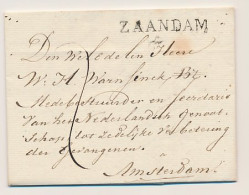 ZAANDAM
Den Wel Edelen Heere
W: H Warnsinck Bz:
Medebestuurder en Secretaris
van het Nederlandsch Genoot-
schap tot Zedelijke Verbetering
der Gevangenen
Amsterdam